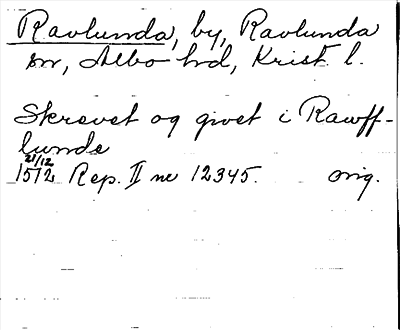 Ravlunda, by, Ravlunda
sn, Albo hd, Krist. l.
Skrevet og givet i Rawff-
lunde
21/12
1512 Rep. II nr 12345. orig.